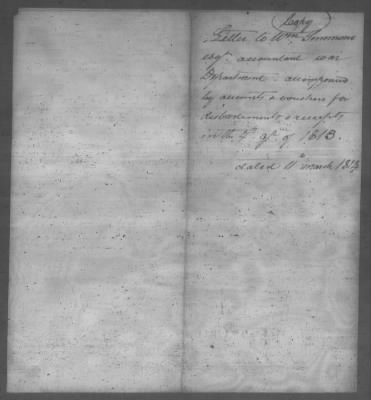 (Copy)
Letter to Wm Simmons
esqr. accountant war
Department - accompanied
by accounts & vouchers for
disbursements & receipts
in the 4th qr. of 1813.
dated 11th March 1814